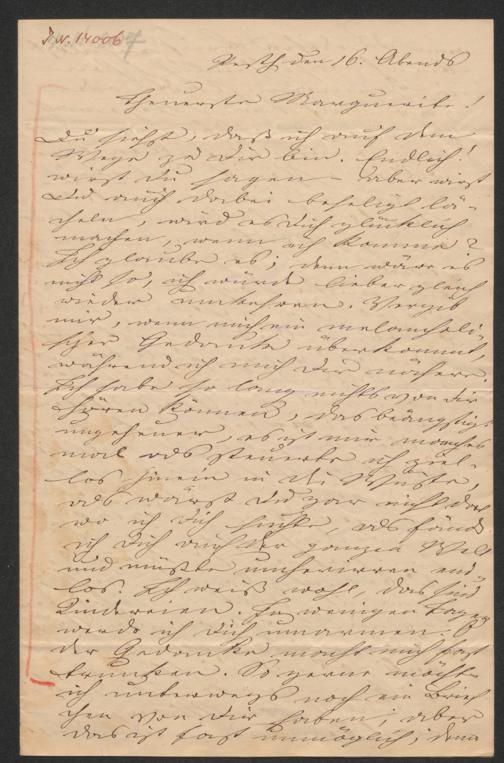 J. N. 140067
Pesth den 16. Abends
Theuerste Marguerite!
Du siehst, daß ich auf dem
Wege zu Dir bin. Endlich!
wirst du sagen – aber wirst
Du auch dabei beseligt lä-
cheln, wird es Dich glücklich
machen, wenn ich komme?
Ich glaube es; denn wäre es
nicht so, ich würde lieber gleich
wieder umkehren. Vergib
mir, wenn mich ein melancholi-
scher Gedanke überkommt,
während ich mich Dir nähere.
Ich habe so lang nichts von Dir
hören können, das beängstigt
ungeheuer, es ist mir manches
mal als steuerte ich ziel-
los hinein in die Wüste,
als wärst Du gar nicht da
wo ich Dich suchte, als fände
ich Dich auf der ganzen Welt
und müßte umherirren end-
los. Ich weiß wohl, das sind
Kindereien. In wenigen Tagen
werde ich Dich umarmen. O
der Gedanke macht mich fast
trunken. So gerne möchte
ich unterwegs noch ein Brief-
chen von Dir haben; aber
das ist fast unmöglich; denn